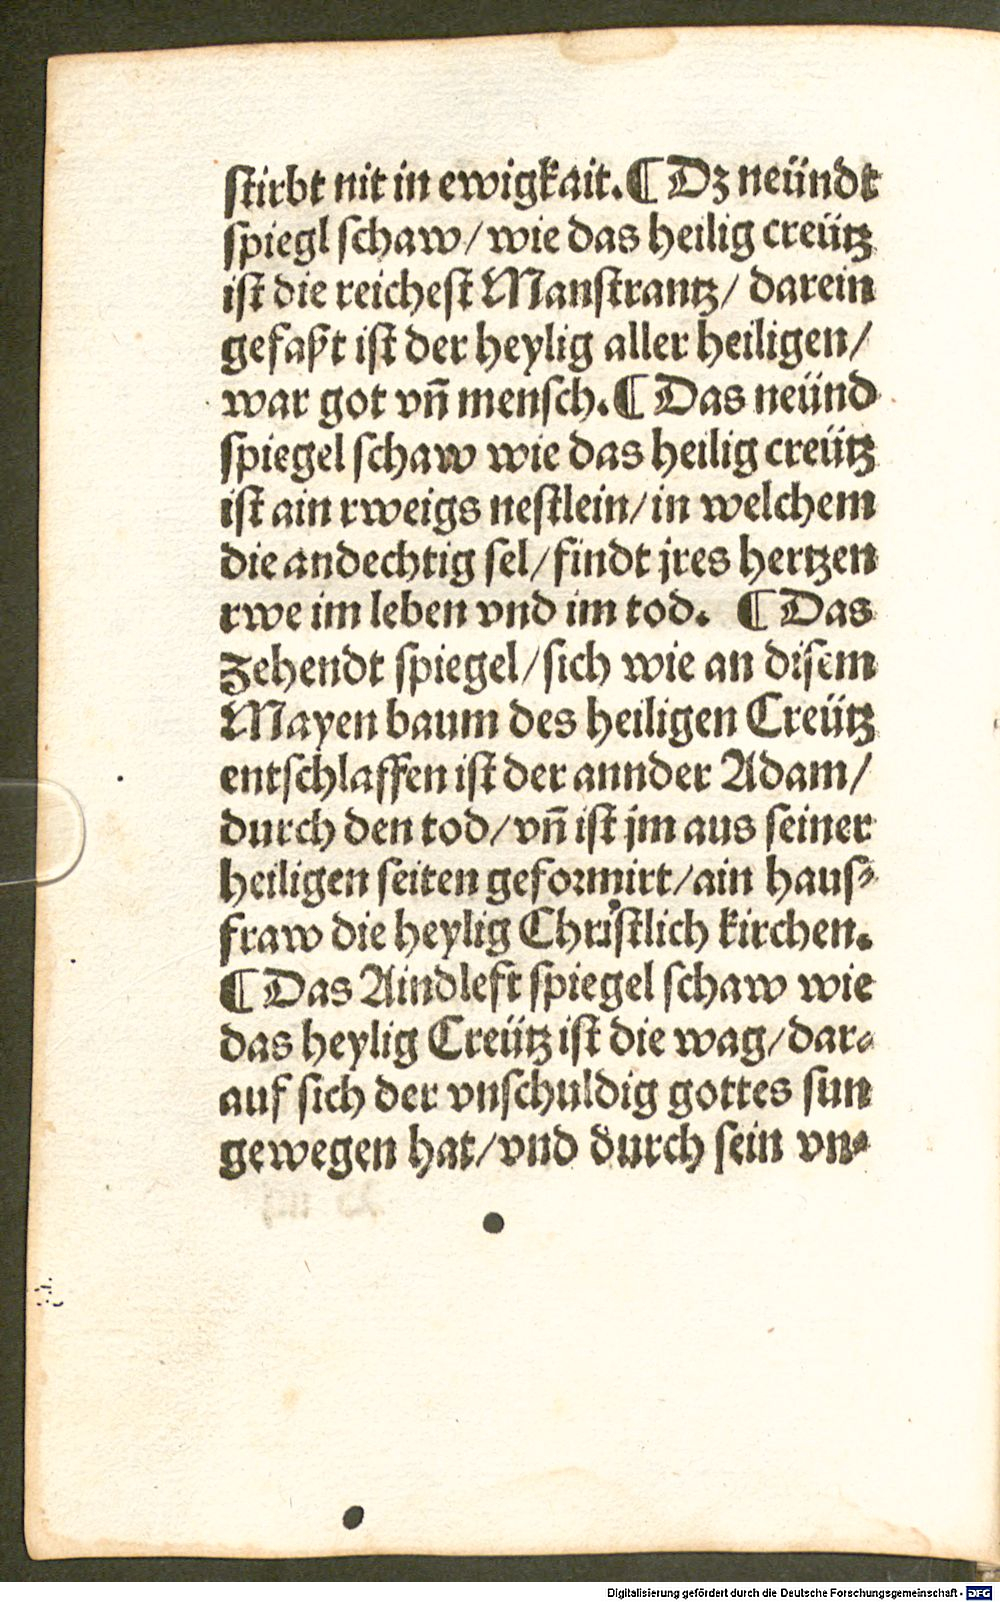 stirbt nit in ewigkait. ¶ Dz neündt
spiegl schaw / wie das heilig creütz
ist die reichest Manstrantz / darein
gefaßt ist der heylig aller heiligen /
war got vñ mensch. ¶ Das neünd
spiegel schaw wie das heilig creütz
ist ain rweigs nestlein / in welchem
die andechtig sel / findt jres hertzen
rwe im leben vnd im tod. ¶ Das
zehendt spiegel / sich wie an disem
Mayen baum des heiligen Creütz
entschlaffen ist der annder Adam /
durch den tod / vñ ist jm aus seiner
heiligen seiten geformirt / ain haus⸗
fraw die heylig Christlich kirchen.
¶ Das Aindleft spiegel schaw wie
das heylig Creütz ist die wag / dar⸗
auf sich der vnschuldig gottes sun
gewegen hat / vnd durch sein vn⸗
Digitalisierung gefördert durch die Deutsche Forschungsgemeinschaft - DFG